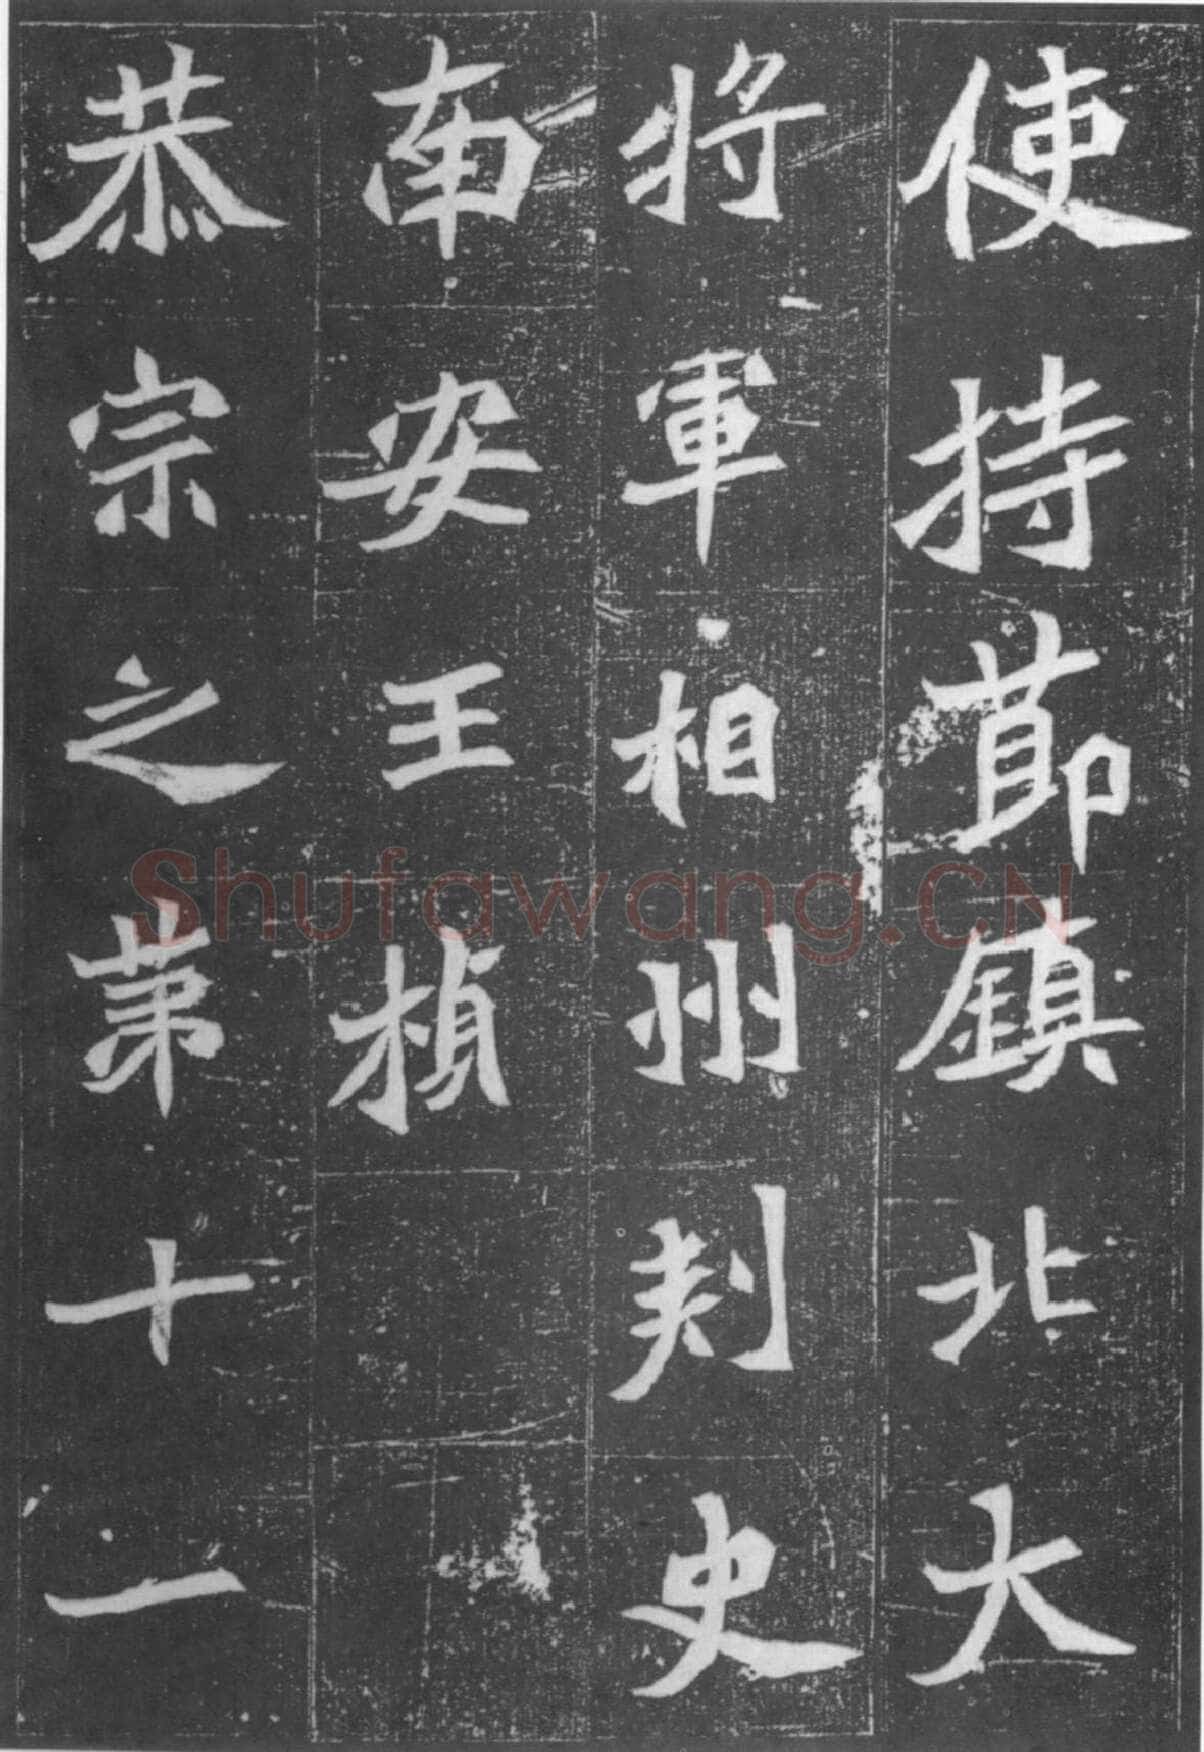 使持節鎮北大
將軍相州刺史
南安王楨
恭宗之第十一
Shufawang.CN